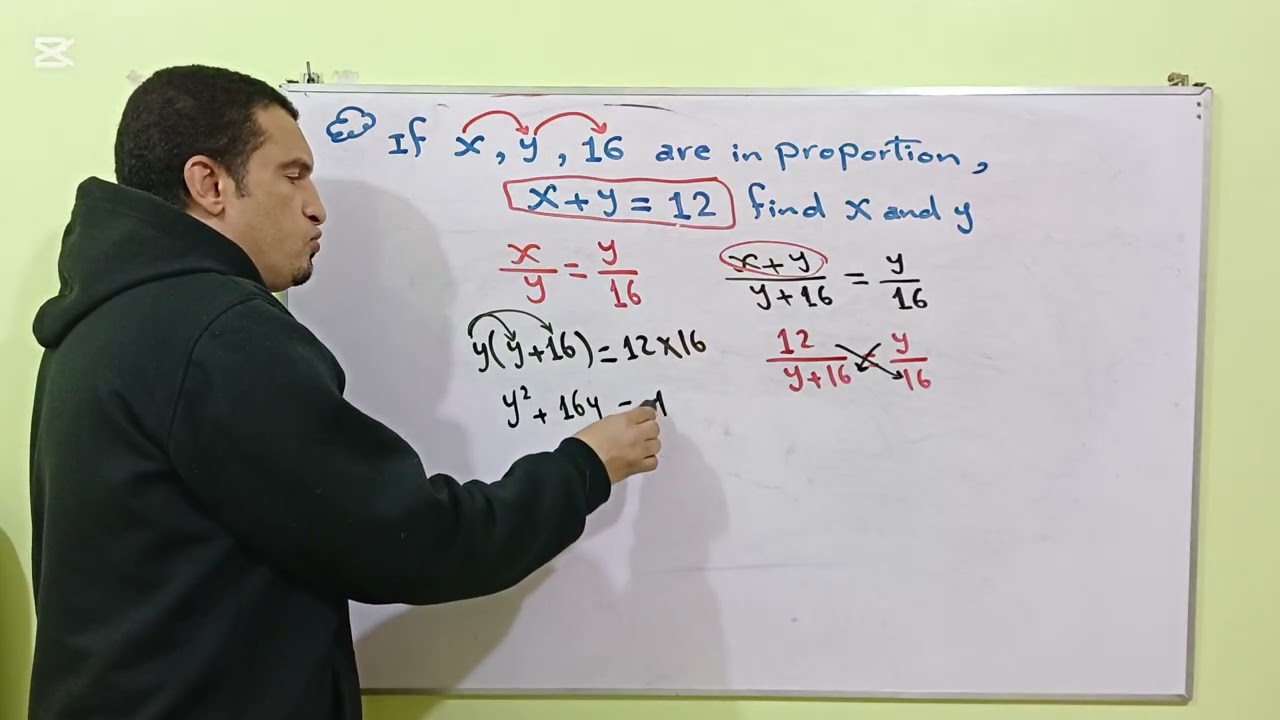 If x, y, 16 are in proportion,
x + y = 12 find x and y
x/y = y/16
x+y/y+16 = y/16
y(y+16) = 12×16
12/y+16 = y/16
y² + 16y = 1